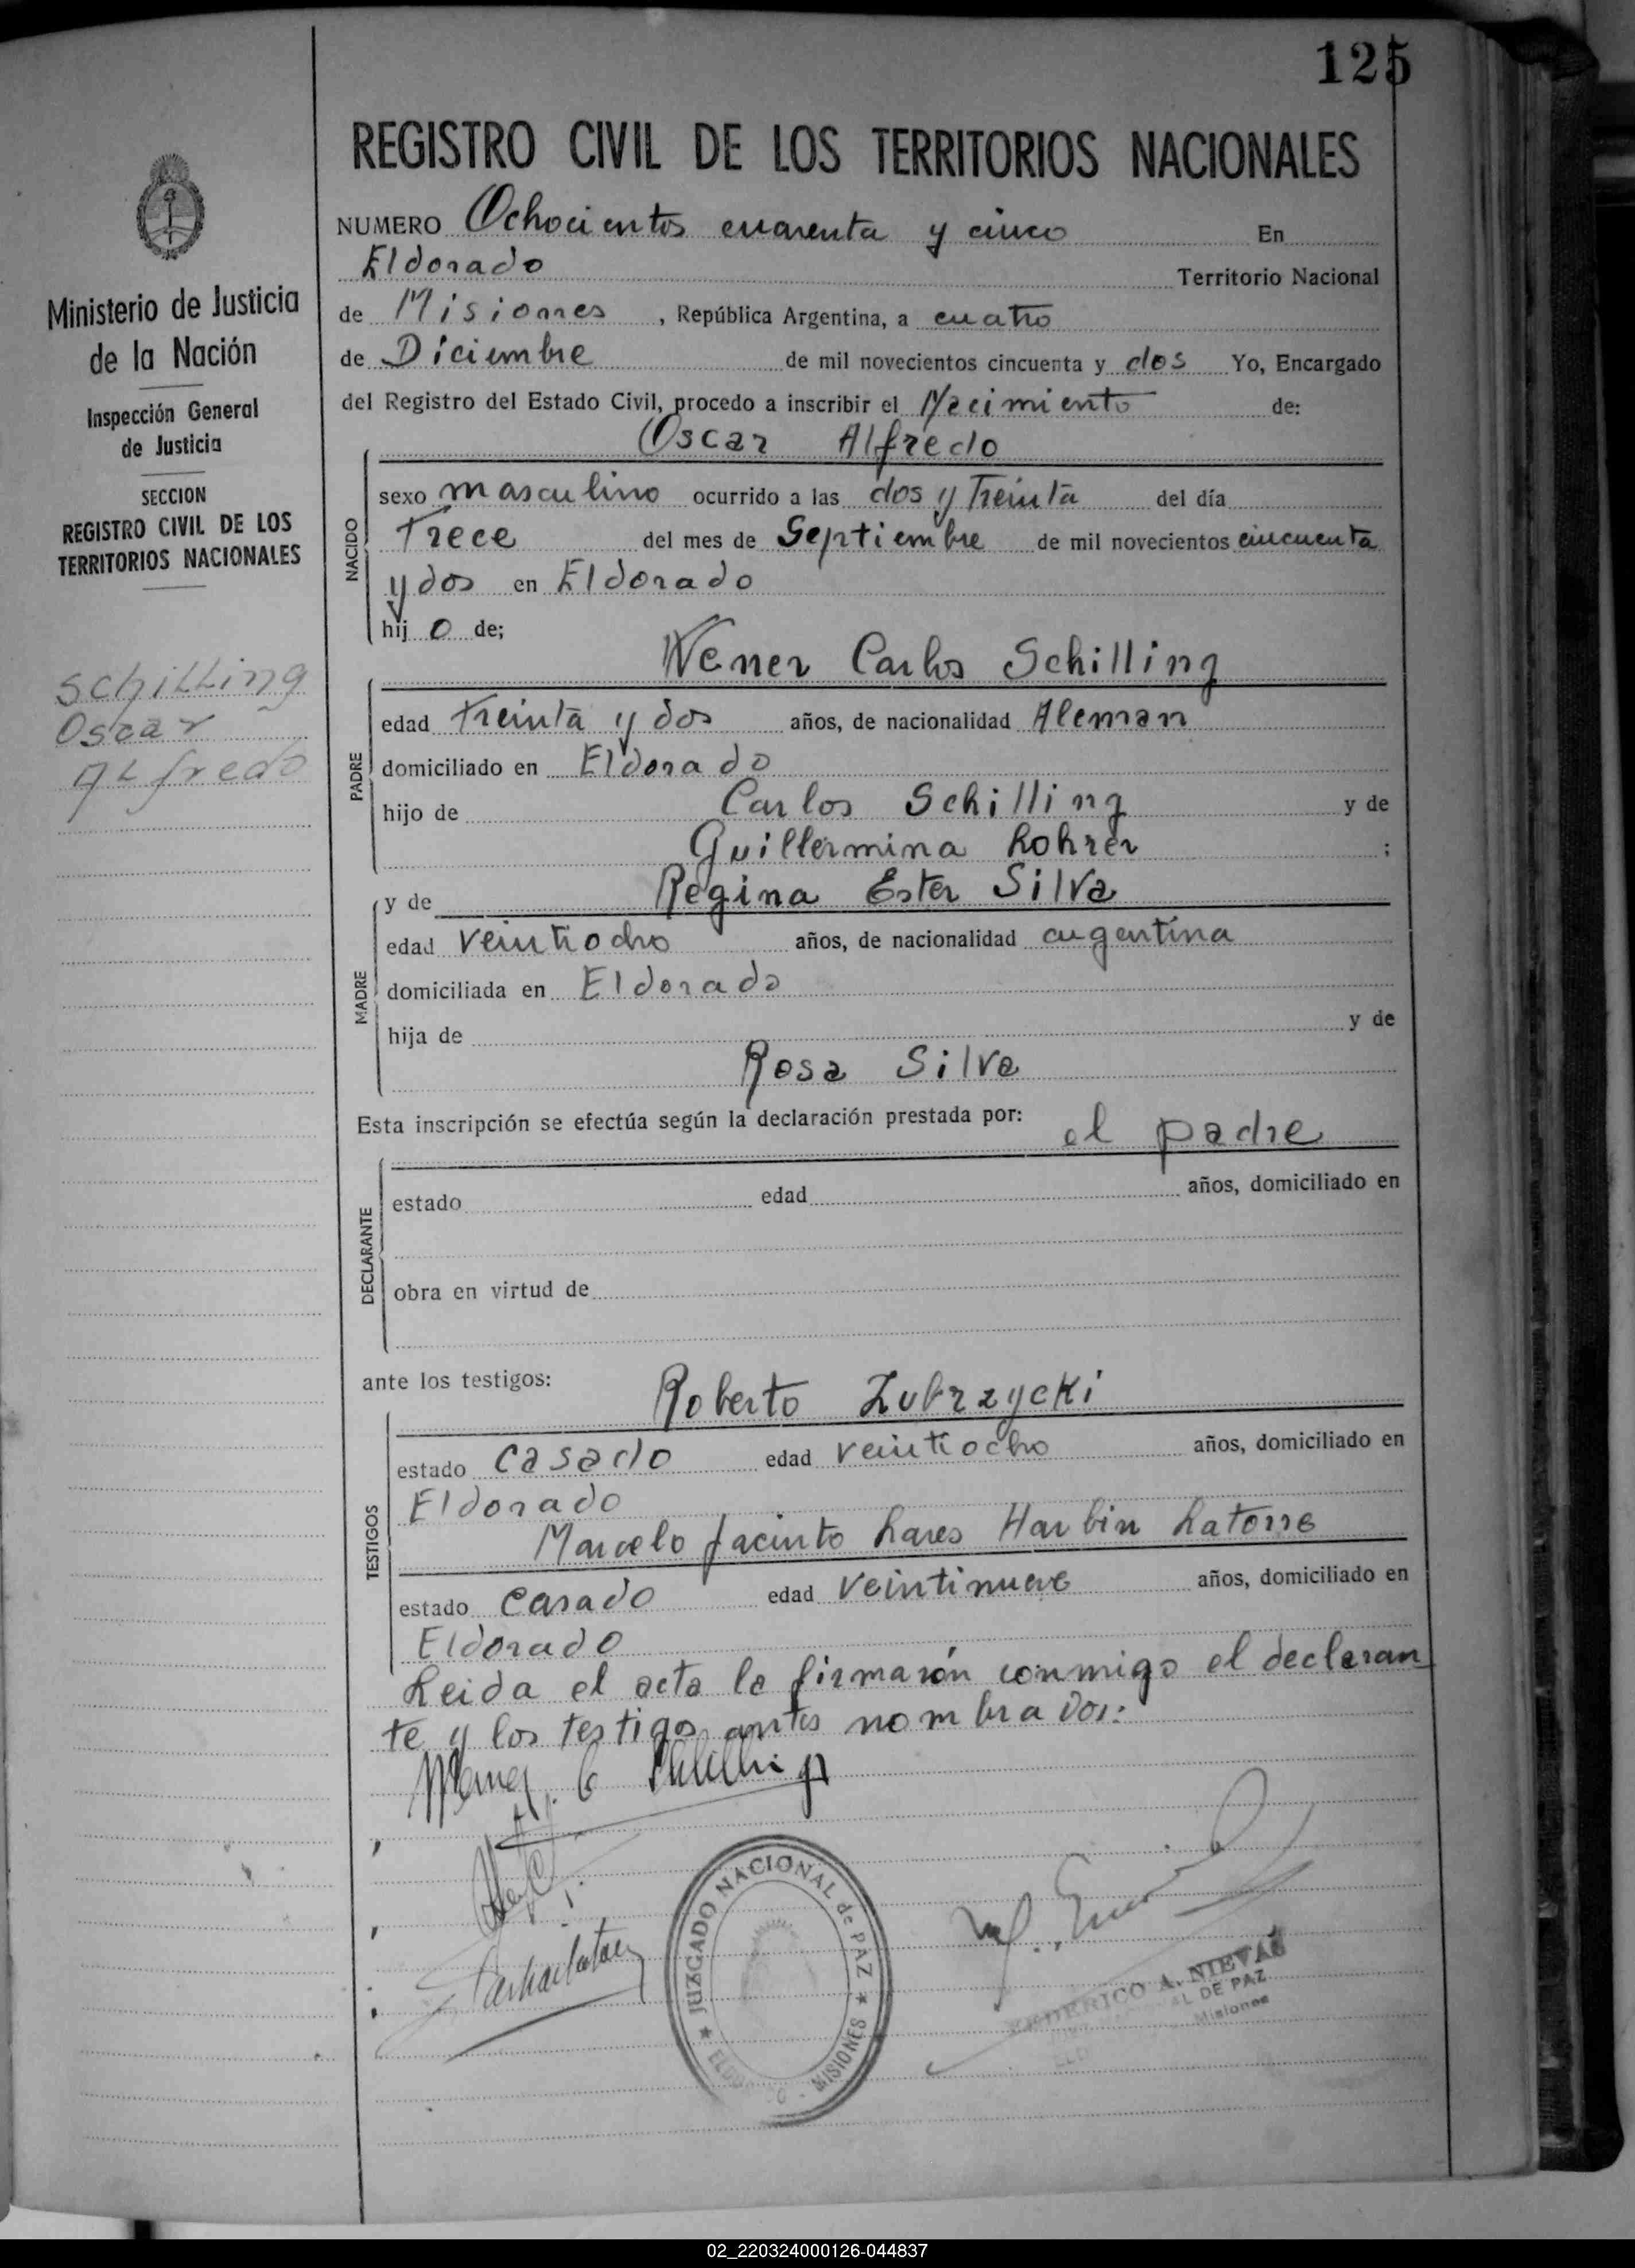 125
REGISTRO CIVIL DE LOS TERRITORIOS NACIONALES
Ministerio de Justicia
de la Nación
Inspección General
de Justicia
SECCION
REGISTRO CIVIL DE LOS
TERRITORIOS NACIONALES
Schilling
Oscar
Alfredo
NUMERO Ochocientos cuarenta y cinco En
Eldorado Territorio Nacional
de Misiones, República Argentina, a cuatro
de Diciembre de mil novecientos cincuenta y dos Yo, Encargado
del Registro del Estado Civil, procedo a inscribir el Nacimiento de:
Oscar Alfredo
NACIDO
sexo masculino ocurrido a las dos y Treinta del día
Trece del mes de Septiembre de mil novecientos cincuenta
y dos en Eldorado
hij o de;
Wener Carlos Schilling
PADRE
edad Treinta y dos años, de nacionalidad Aleman
domiciliado en Eldorado
hijo de Carlos Schilling y de
Guillermina Rohrer ;
y de Regina Ester Silva
MADRE
edad veintiocho años, de nacionalidad argentina
domiciliada en Eldorado
hija de y de
Rosa Silva
Esta inscripción se efectúa según la declaración prestada por: el padre
DECLARANTE
estado edad años, domiciliado en
obra en virtud de
ante los testigos: Roberto Zubrzycki
TESTIGOS
estado casado edad veintiocho años, domiciliado en
Eldorado
Marcelo Jacinto Lares Harbin Latorre
estado casado edad veintinueve años, domiciliado en
Eldorado
Leida el acta la firmarón conmigo el declaran
te y los testigos antes nombrados:
Werner C Schilling
JUZGADO NACIONAL de PAZ
ELDORADO - MISIONES
FEDERICO A. NIEVAS
DE PAZ
Misiones
02_220324000126-044837